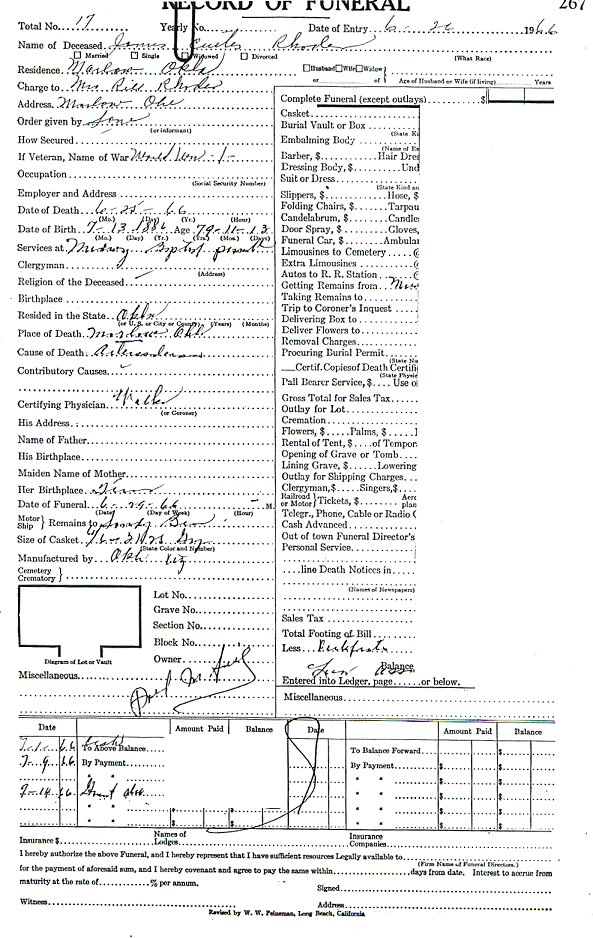 RECORD OF FUNERAL 267
Total No. 17 Yearly No. Date of Entry 6 - 26 1966
Name of Deceased James Rhodes
Married Single Widowed Divorced (What Race)
Residence Marlow Okla Husband Wife Widow
or of Age of Husband or Wife (if living) Years
Charge to Mrs Rhodes
Complete Funeral (except outlays) $
Address Marlow
Casket
Order given by Son
Burial Vault or Box
(or informant) (State Ki
How Secured Embalming Body
(Name of E
If Veteran, Name of War World War - 1 - Barber, $ Hair Dres
Dressing Body, $ Und
Occupation Suit or Dress
(Social Security Number) (State Kind an
Slippers, $ Hose, $
Employer and Address Folding Chairs, $ Tarpau
Date of Death 6 - 25 - 66 Candelabrum, $ Candle
(Mo.) (Day) (Yr.) (Hour)
Date of Birth 7 - 13 1886 Age 79 - 11 - 13 Door Spray, $ Gloves,
(Mo.) (Day) (Yr.) (Yrs.) (Mos.) (Days)
Funeral Car, $ Ambula
Services at Midway Baptist Limousines to Cemetery @
Extra Limousines @
Clergyman Autos to R. R. Station @
(Address)
Religion of the Deceased Getting Remains from
Birthplace Taking Remains to
Trip to Coroner's Inquest
Resided in the State Okla Delivering Box to
(or U. S. or City or County) (Years) (Months)
Deliver Flowers to
Place of Death Marlow Okl Removal Charges
Cause of Death Procuring Burial Permit
(State Nu
Contributory Causes Certif. Copies of Death Certifi
(State Physic
Pall Bearer Service, $ Use o
Certifying Physician Gross Total for Sales Tax
(or Coroner) Outlay for Lot
His Address Cremation
Flowers, $ Palms, $
Name of Father Rental of Tent, $ of Tempor
His Birthplace Opening of Grave or Tomb
Lining Grave, $ Lowering
Maiden Name of Mother Outlay for Shipping Charges
Clergyman, $ Singers, $
Her Birthplace Railroad or Motor Tickets, $ Aero plan
Date of Funeral 6 - 29 - 66 M. Telegr., Phone, Cable or Radio (
(Date) (Day of Week) (Hour)
Motor Ship Remains to Cash Advanced
Out of town Funeral Director's
Size of Casket Personal Service
(State Color and Number)
Manufactured by Okla
line Death Notices in
Cemetery
Crematory
(Names of Newspapers)
Lot No.
Grave No.
Section No. Sales Tax
Block No. Total Footing of Bill
Diagram of Lot or Vault Less
Owner Balance
Miscellaneous Entered into Ledger, page or below.
Miscellaneous
Date Amount Paid Balance Date Amount Paid Balance
7 - 1 - 66 To Above Balance To Balance Forward $ $
7 - 9 66 By Payment By Payment $ $
" " " " $ $
9 - 14 66 " " " " $ $
" " $ $ " " $ $
Insurance $ Names of Lodges Insurance Companies
I hereby authorize the above Funeral, and I hereby represent that I have sufficient resources Legally available to
(Firm Name of Funeral Directors.)
for the payment of aforesaid sum, and I hereby covenant and agree to pay the same within days from date. Interest to accrue from
maturity at the rate of % per annum.
Signed
Witness Address
Revised by W. W. Feineman, Long Beach, California